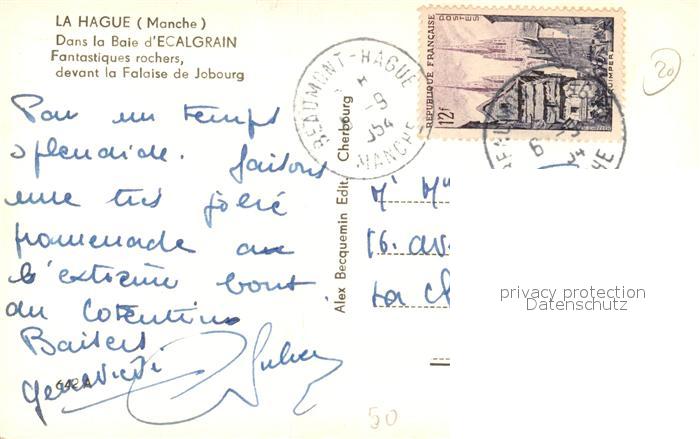 LA HAGUE (Manche)
Dans la Baie d'ECALGRAIN
Fantastiques rochers,
devant la Falaise de Jobourg
Par un temps
splendide. faisons
une très jolie
promenade au
l'extrême bout
du Cotentin
Baisers.
Geneviève
642 A
Alex Becquemin Edit. Cherbourg
BEAUMONT-HAGUE
6 -9
1954
MANCHE
REPUBLIQUE FRANÇAISE
POSTES
12f
QUIMPER
BEAU
6 -9
54
HE
20
Mr Me
16. av.
La Ch
privacy protection
Datenschutz
50